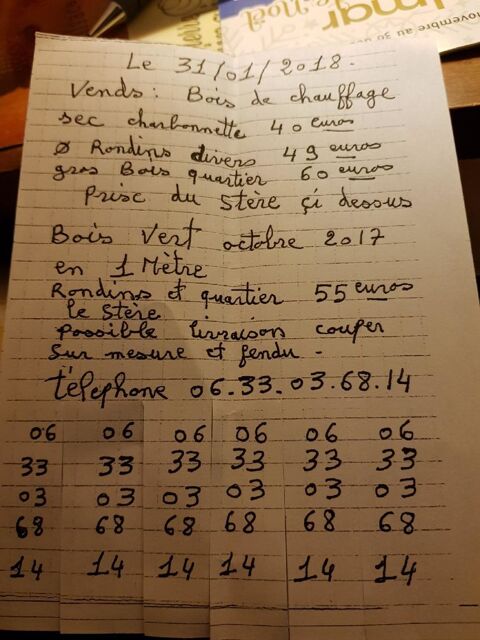 novembre au 30
lmar
Noël
Le 31/01/2018.
Vends: Bois de chauffage
sec charbonnette 40 euros
Ø Rondins divers 49 euros
gros Bois quartier 60 euros
Prisc du Stère çi dessous
Bois Vert octobre 2017
en 1 Mètre
Rondins et quartier 55 euros
le Stère
possible livraison couper
Sur mesure et fendu -
télephone 06.33.03.68.14
06 06 06 06 06 06
33 33 33 33 33 33
03 03 03 03 03 03
68 68 68 68 68 68
14 14 14 14 14 14